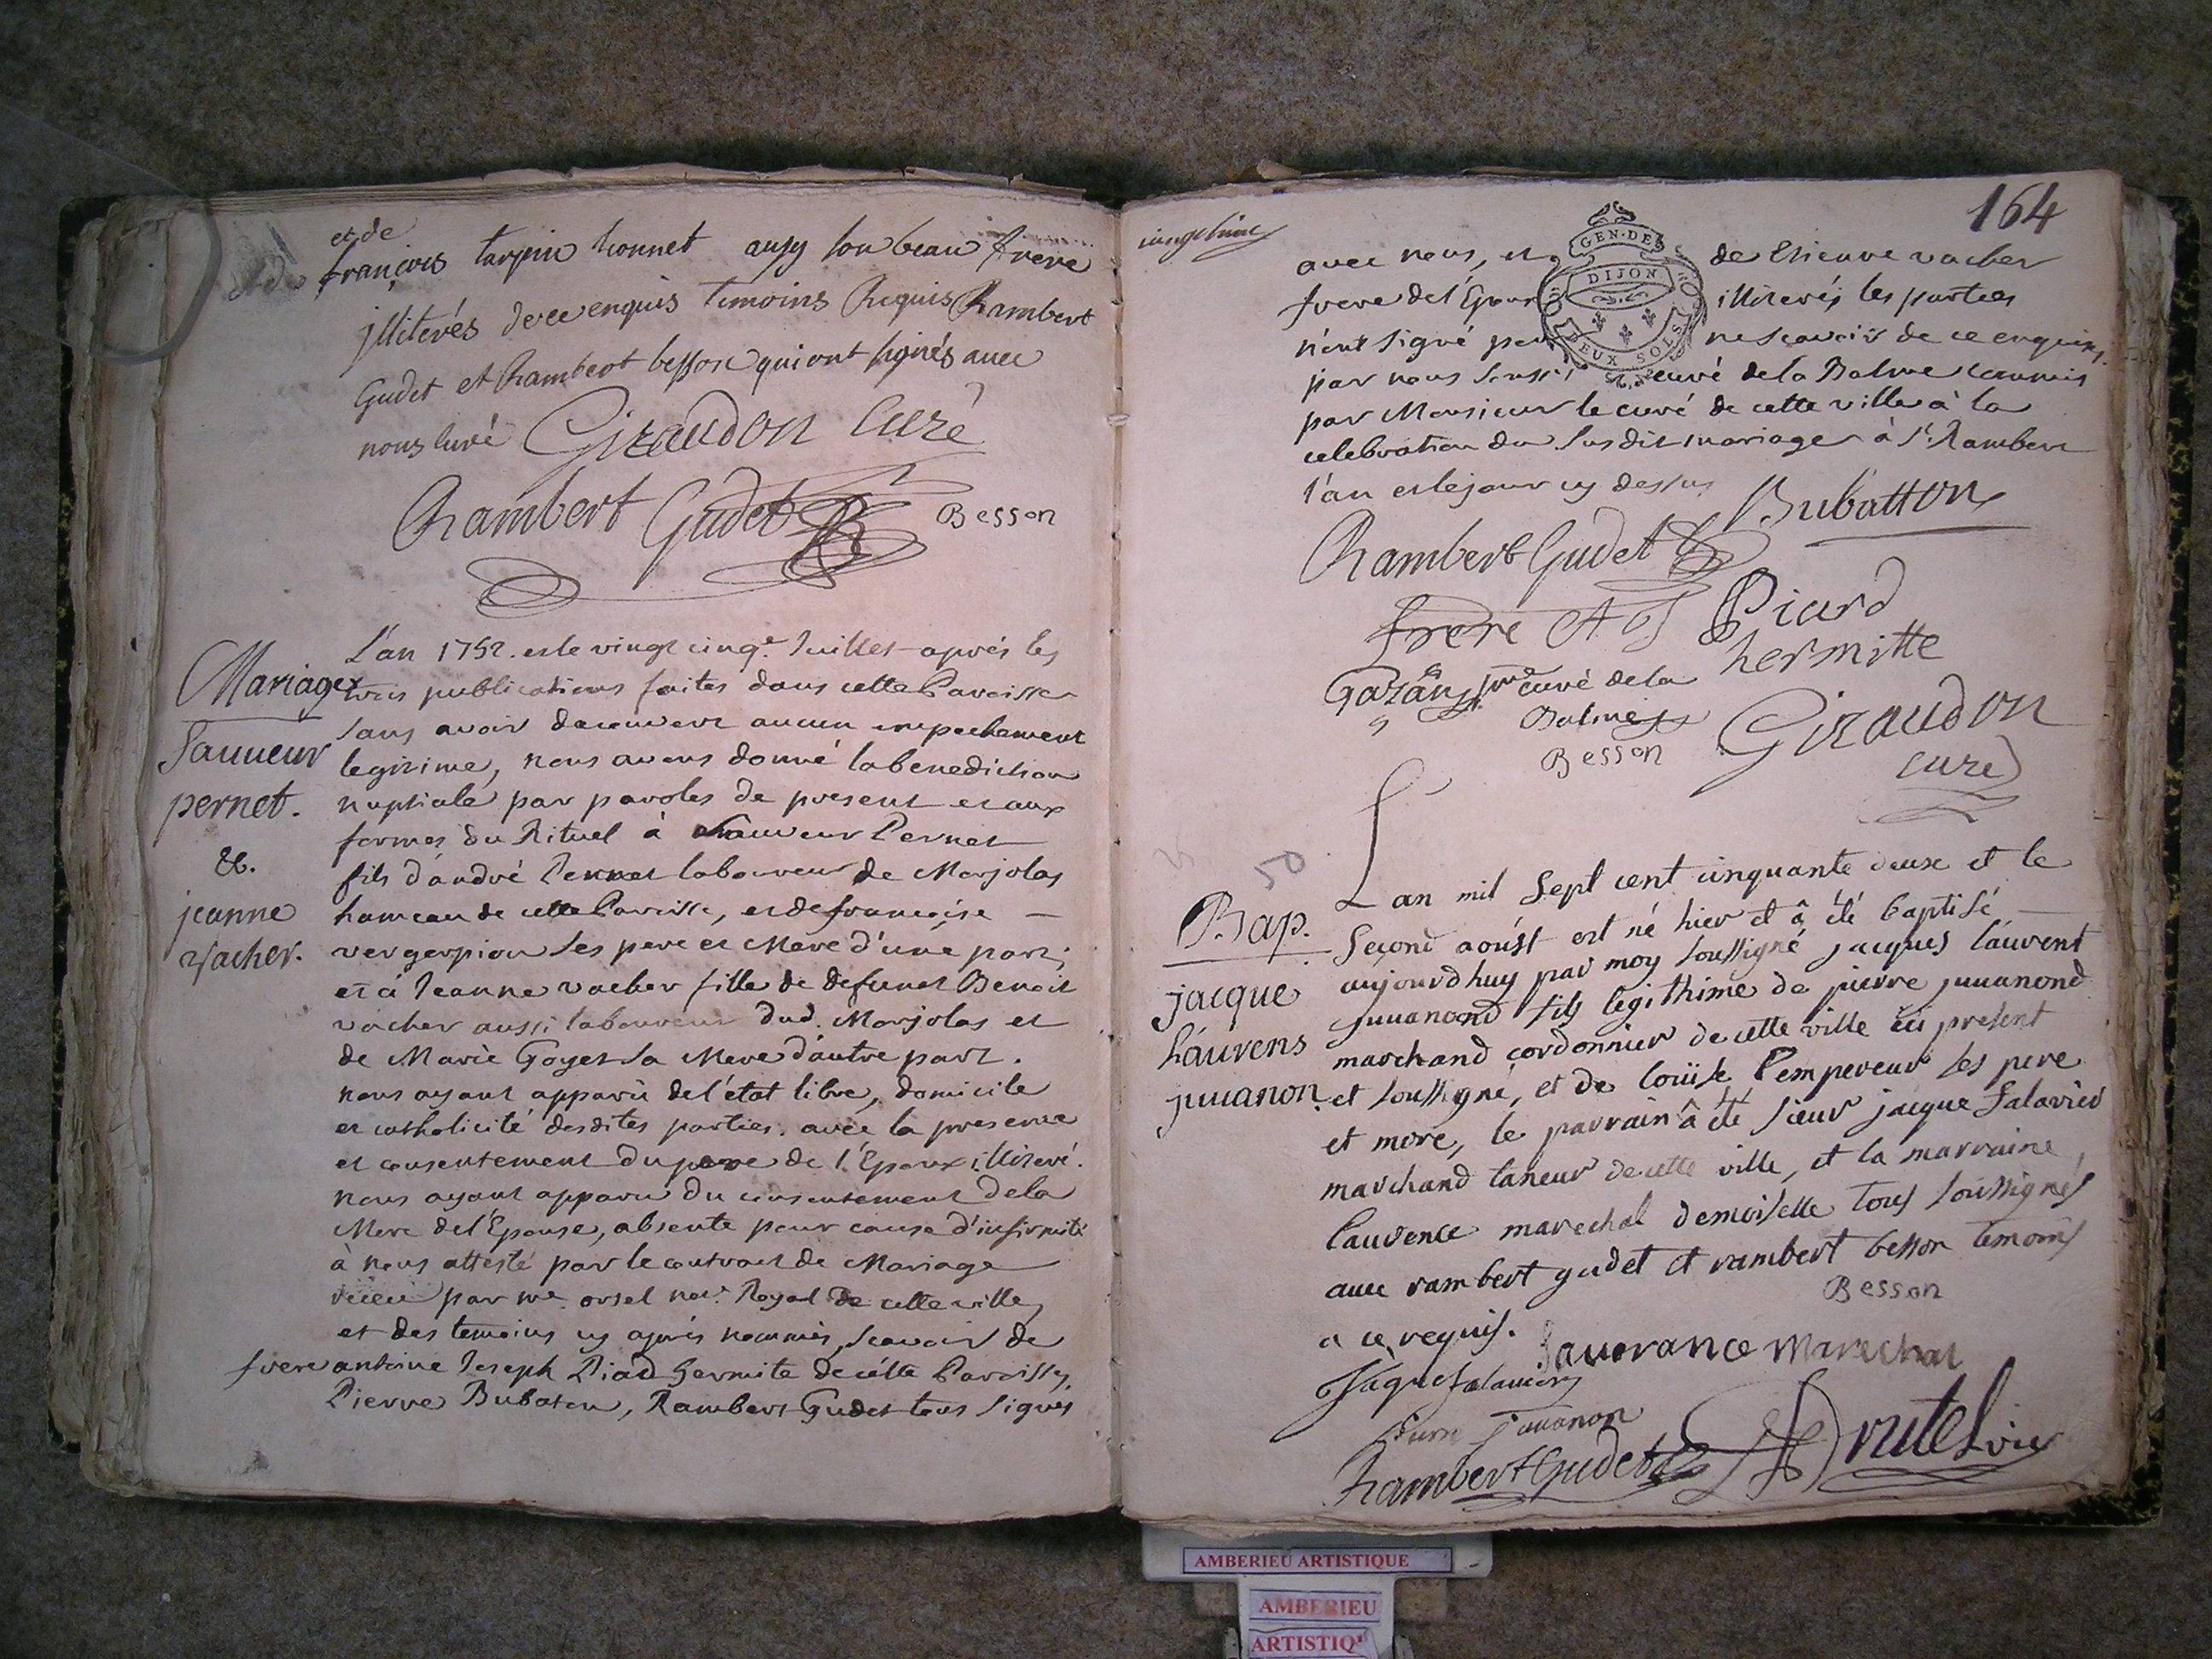 et de
françois tarpin honnet aussy son beau frere
jlliterés de ce enquis temoins Requis Rambert
Gudet et Rambert besson qui ont signés avec
nous Curé Giraudon Curé
Rambert Gudet Besson
Mariage
Sauveur
pernet.
&.
jeanne
vacher.
L'an 1752. et le vingt cinq.e Juillet après les
trois publications faites dans cette Paroisse
sans avoir decouvert aucun empechement
legitime, nous avons donné la benediction
nuptiale par paroles de present et aux
formes du Rituel à Sauveur Pernet
fils d'andré Pernet laboureur de Marjolas
hameau de cette Paroisse, et de françoise
vergerpion ses pere et Mere d'une part;
et à Jeanne vacher fille de defunct Benoit
vacher aussi laboureur dud. Marjolas et
de Marie Goyet sa Mere d'autre part.
nous ayant apparu de l'état libre, domicile
et catholicité desdites parties. avec la presence
et consentement du pere de l'Epoux illiteré.
nous ayant apparu du consentement de la
Mere de l'Epouse, absente pour cause d'infirmité
à nous attesté par le contract de Mariage
par me. orsel nore. Royal de cette ville,
et des temoins cy après nommés, scavoir de
frere antoine Joseph Piad hermite de cette Paroisse,
Pierre Bubaton, Rambert Gudet tous signés
164
avec nous, et de Etienne vacher
frere de l'Epouse illiterés les parties
n'ont signé pour ne scavoir de ce enquises.
par nous souss curé de la Balme commis
par Monsieur le curé de cette ville à la
celebration du susdit mariage à St. Rambert
l'an et le jour cy dessus
GEN. DE
DIJON
DEUX SOLS
Bubatton
Rambert Gudet
frere A J Piard
hermitte
Gazan curé de la
Balme
Besson
Giraudon
curé
50
Bap.
jacque
Laurens
juuanon.
L'an mil sept cent cinquante deux et le
second aoust est né hier et â été baptisé
aujourdhuy par moy soussigné jacques laurent
juuanond fils legithime de pierre juuanond
marchand cordonnier de cette ville icy present
et soussigné, et de loüise l'empereur ses pere
et mere, le parrain â été sieur jacque falavier
marchand taneur de cette ville, et la marraine,
laurence marechal demoiselle tous soussignés
avec rambert gudet et rambert besson temoins
a ce requis.
Besson
Lauorance Marechal
juuanon
Rambert Gudet